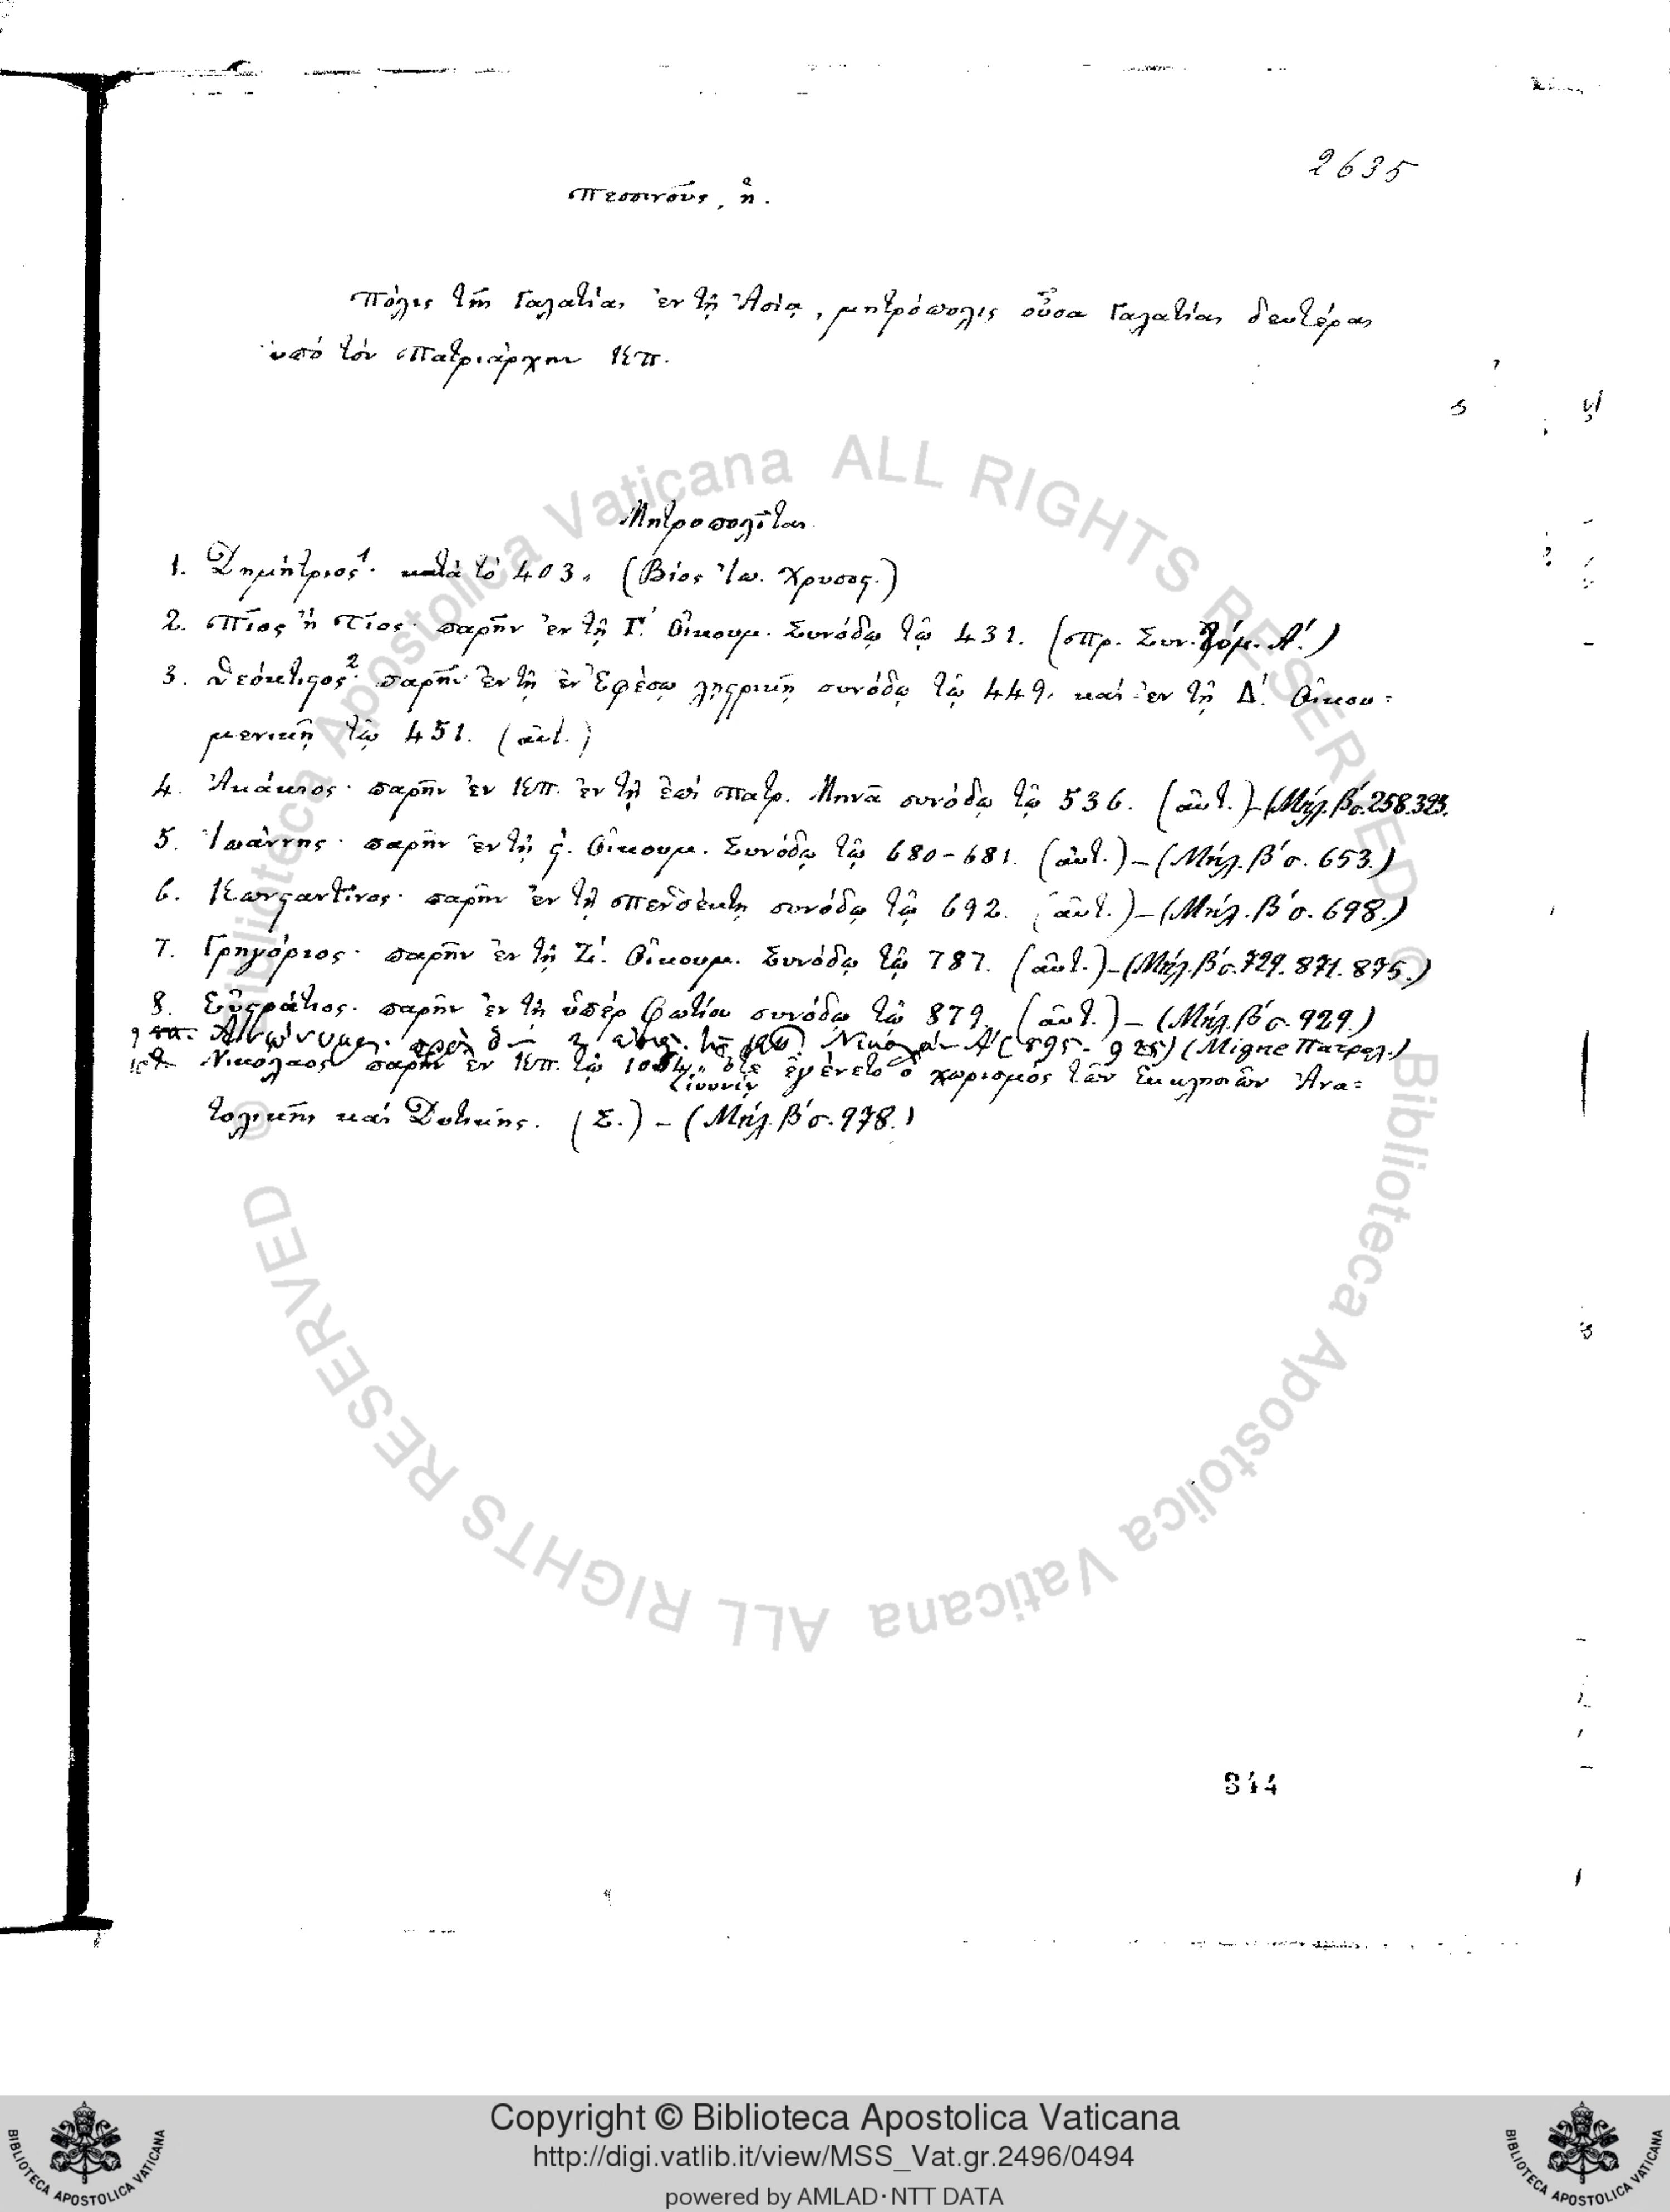 2635
Πεσσινοῦς, ἡ.
Πόλις τῆς Γαλατίας ἐν τῇ Ἀσίᾳ, μητρόπολις οὖσα Γαλατίας δευτέρας
ὑπὸ τὸν Πατριάρχην Κπ.
Μητροπολῖται
1. Δημήτριος¹· κατὰ τὸ 403. (Βίος Ἰω. Χρυσοσ.)
2. Πῖος ἢ Τῖος· παρῆν ἐν τῇ Γ΄. Οἰκουμ. Συνόδῳ τῷ 431. (Πρ. Συν. Τόμ. Α΄.)
3. Θεόκτιστος²· παρῆν ἐν τῇ ἐν Ἐφέσῳ λῃστρικῇ συνόδῳ τῷ 449. καὶ ἐν τῇ Δ΄. Οἰκου=
μενικῇ τῷ 451. (αὐτ.)
4. Ἀκάκιος· παρῆν ἐν Κπ. ἐν τῇ ἐπὶ Πατρ. Μηνᾶ συνόδῳ τῷ 536. (αὐτ.) – (Μήλ. β΄ σ. 258. 323.
5. Ἰωάννης· παρῆν ἐν τῇ ϛ΄. Οἰκουμ. Συνόδῳ τῷ 680-681. (αὐτ.) – (Μήλ. β΄ σ. 653.)
6. Κωνσταντῖνος· παρῆν ἐν τῇ Πενθέκτῃ συνόδῳ τῷ 692. (αὐτ.) – (Μήλ. β΄ σ. 698.)
7. Γρηγόριος· παρῆν ἐν τῇ Ζ΄. Οἰκουμ. Συνόδῳ τῷ 787. (αὐτ.) – (Μήλ. β΄ σ. 729. 871. 875.)
8. Εὐστράτιος· παρῆν ἐν τῇ ὑπὲρ Φωτίου συνόδῳ τῷ 879. (αὐτ.) – (Μήλ. β΄ σ. 929.)
9 Ἀνώνυμος. πρὸς Νικολάου Α΄ (895-925) (Migne Πατρολ.)
10 Νικόλαος παρῆν ἐν Κπ. τῷ 1054 ὅτε ἐγένετο ὁ χωρισμὸς τῶν Ἐκκλησιῶν Ἀνα=
τολικῆς καὶ Δυτικῆς. (Σ.) – (Μήλ. β΄ σ. 978.)
844
© Biblioteca Apostolica Vaticana ALL RIGHTS RESERVED
© Biblioteca Apostolica Vaticana ALL RIGHTS RESERVED
Copyright © Biblioteca Apostolica Vaticana
http://digi.vatlib.it/view/MSS_Vat.gr.2496/0494
powered by AMLAD·NTT DATA
BIBLIOTECA APOSTOLICA VATICANA
BIBLIOTECA APOSTOLICA VATICANA